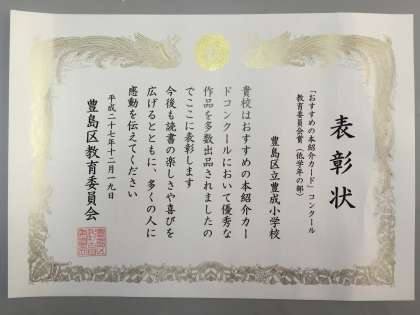 表彰状
「おすすめの本紹介カード」コンクール
教育委員会賞(低学年の部)
豊島区立豊成小学校
貴校はおすすめの本紹介カー
ドコンクールにおいて優秀な
作品を多数出品されましたの
でここに表彰します
今後も読書の楽しさや喜びを
広げるとともに、多くの人に
感動を伝えてください
平成二十七年十二月一九日
豊島区教育委員会